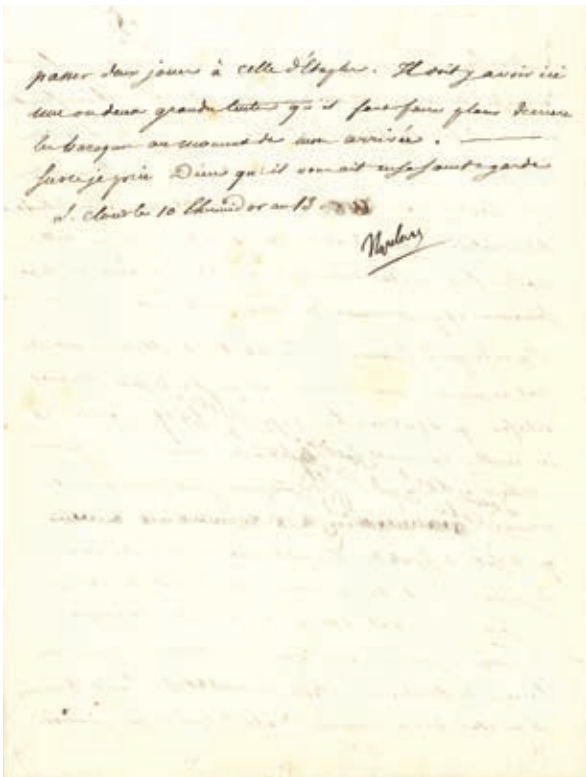 passer deux jours à celle d'Étaples. Il doit y avoir ici
une ou deux grandes tentes qu'il faut faire placer derrière
les baraques au moment de mon arrivée.
Sur ce je prie Dieu qu'il vous ait en sa sainte garde
S. Cloud le 10 thermidor an 13